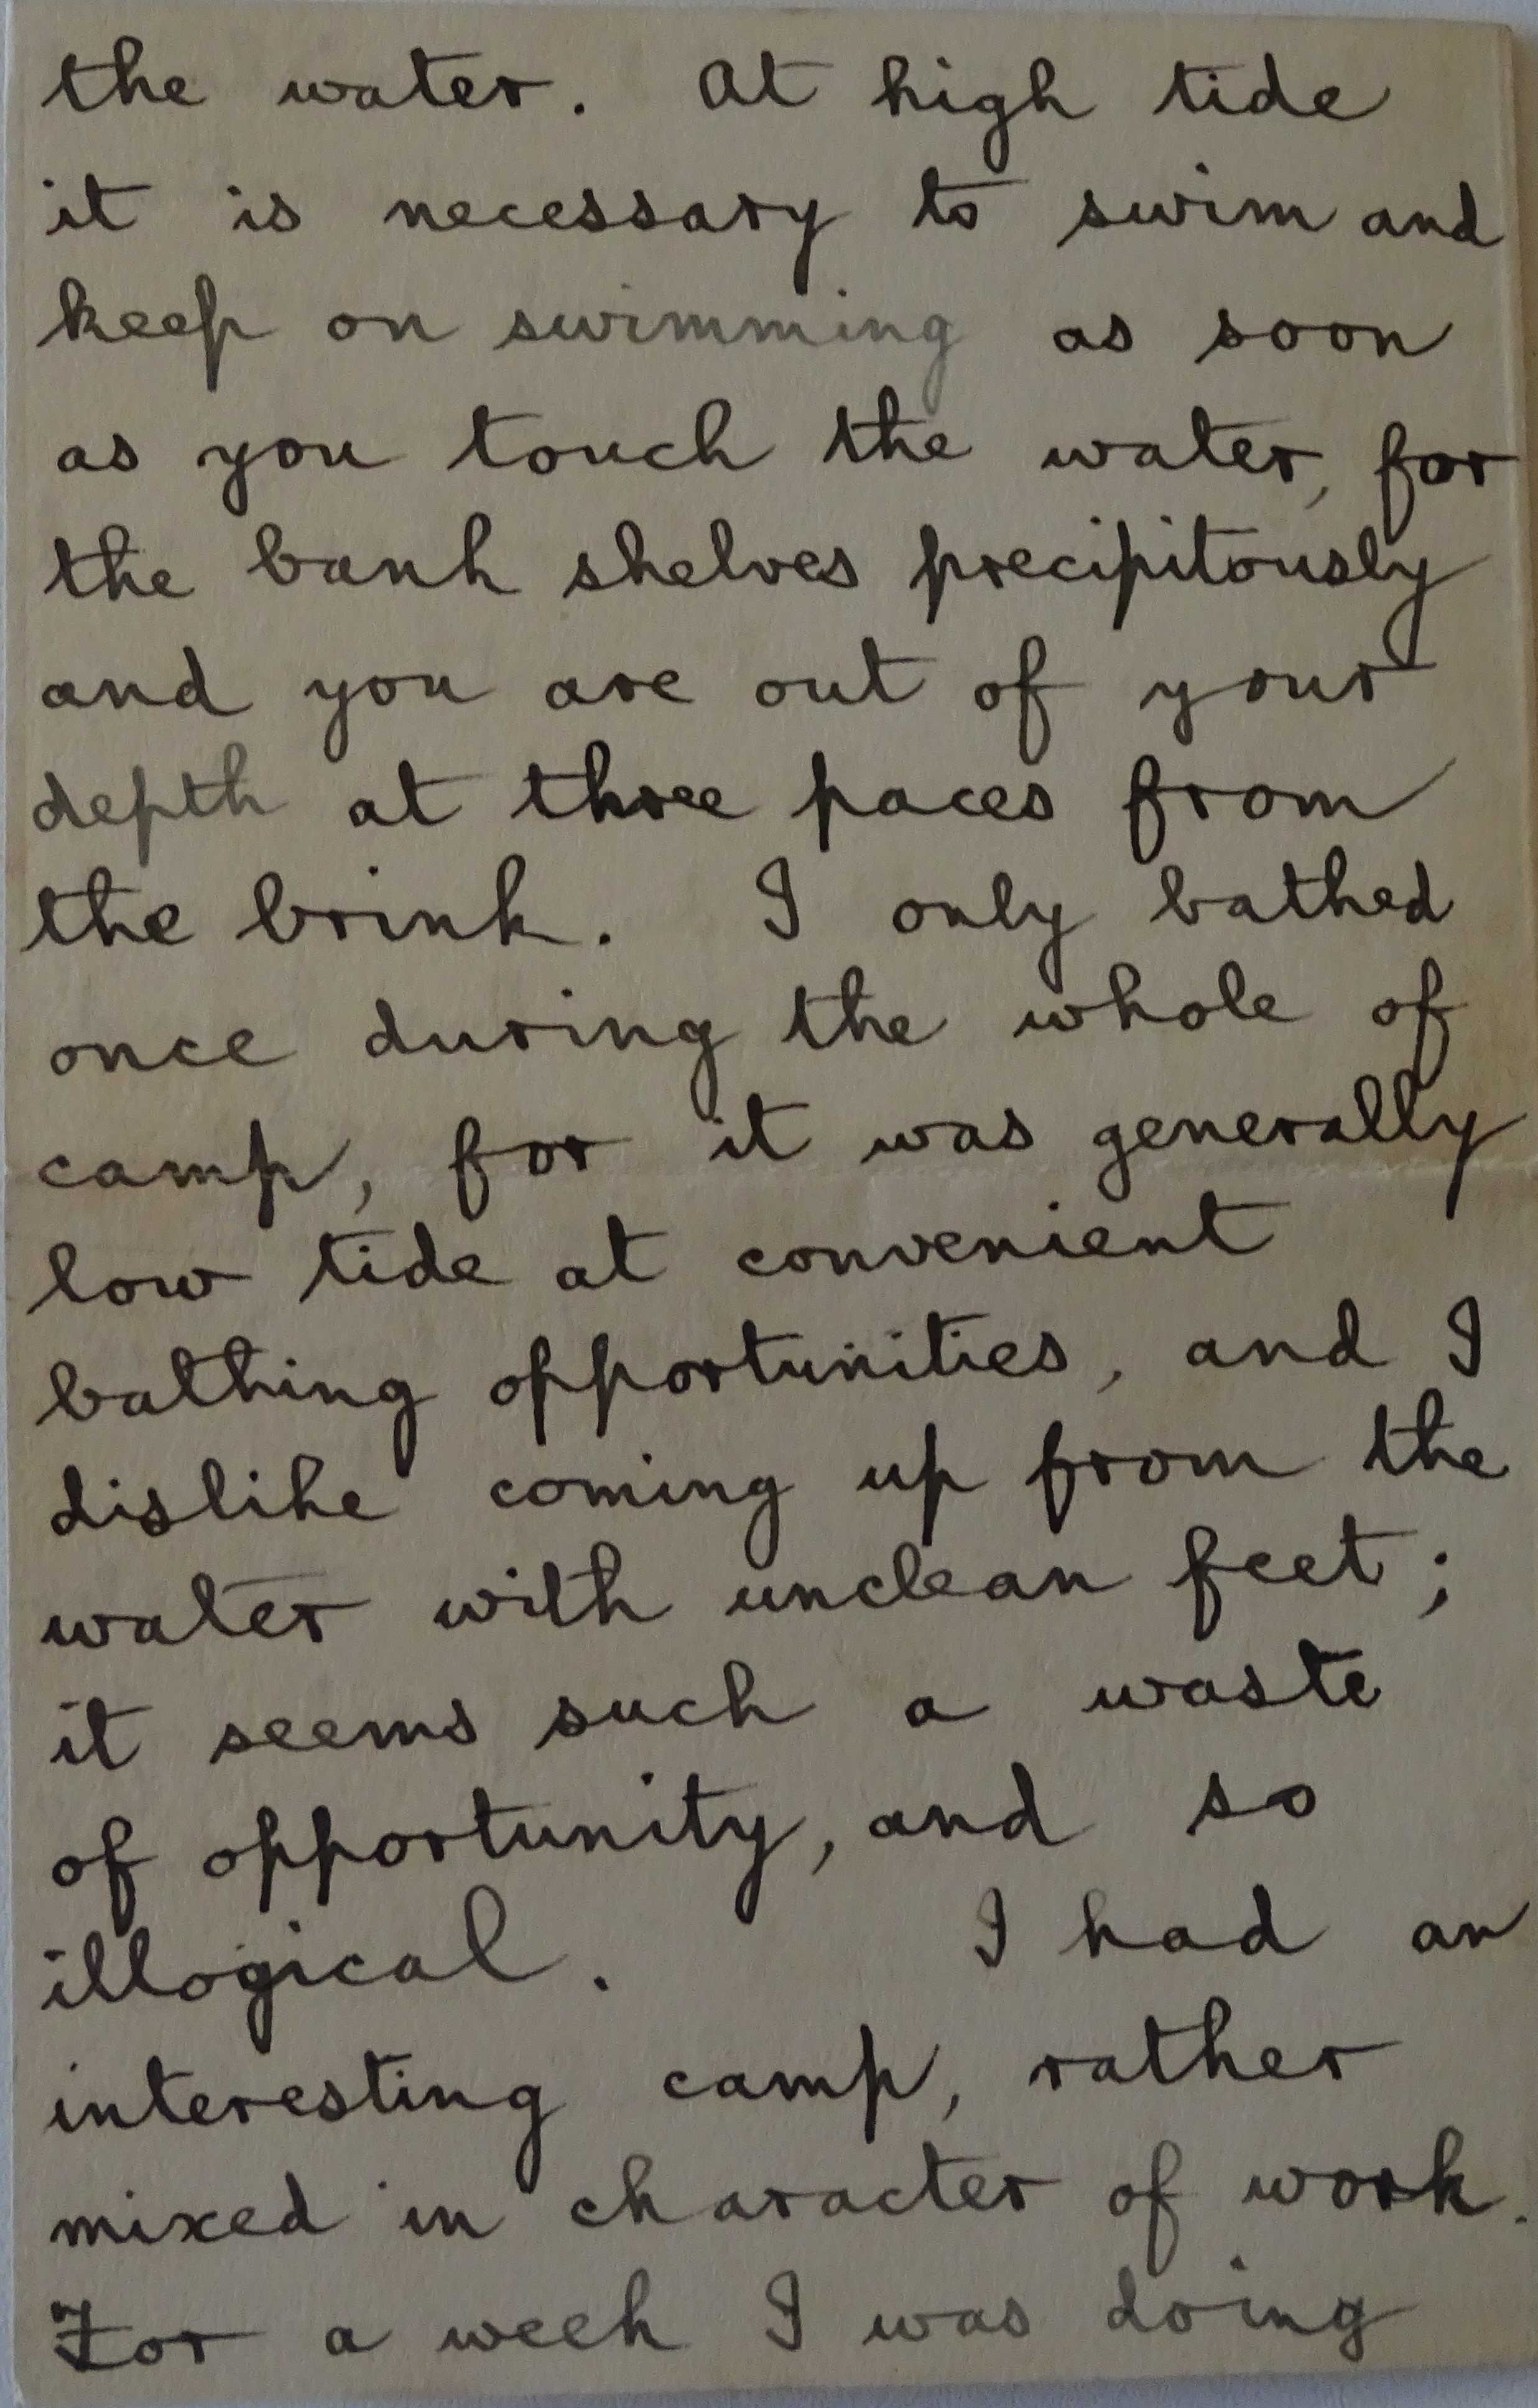 the water. At high tide
it is necessary to swim and
keep on swimming as soon
as you touch the water, for
the bank shelves precipitously
and you are out of your
depth at three paces from
the brink. I only bathed
once during the whole of
camp, for it was generally
low tide at convenient
bathing opportunities, and I
dislike coming up from the
water with unclean feet;
it seems such a waste
of opportunity, and so
illogical. I had an
interesting camp, rather
mixed in character of work.
For a week I was doing